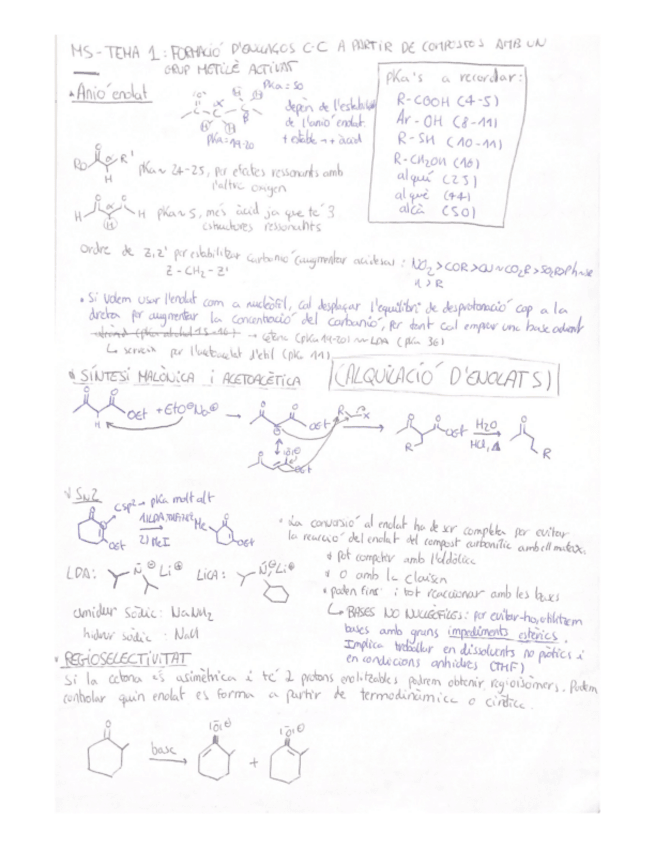 MS-TEMA 1: FORMACIÓ D'ENLLAÇOS C-C A PARTIR DE COMPOSTOS AMB UN
GRUP METILÈ ACTIVAT
Anió enolat
pKa = 50
pKa = 19-20
depèn de l'estabilitat
de l'anió enolat.
+ estable → + àcid
pKa's a recordar:
R-COOH (4-5)
Ar-OH (8-11)
R-SH (10-11)
R-CH2OH (16)
alquí (25)
alquè (44)
alcà (50)
pKa ~ 24-25, per efectes ressonants amb
l'altre oxigen
pKa ~ 5, més àcid ja que té 3
estructures ressonants
Ordre de Z, Z' per estabilitzar carbanió (augmentar acidesa): NO2 > COR > CN ~ CO2R > SO2R > Ph
Z-CH2-Z'
> R
• Si volem usar l'enolat com a nucleòfil, cal desplaçar l'equilibri de desprotonació cap a la
dreta per augmentar la concentració del carbanió, per tant cal emprar una base adient
→ cetona (pKa 19-20) ~ LDA (pKa 36)
↳ serveix per l'acetoacetat d'etil (pKa 11)
SÍNTESI MALÒNICA i ACETOACÈTICA (ALQUILACIÓ D'ENOLATS)
OEt + EtO⊖Na⊕ → OEt R X → OEt H2O HCl, Δ R
SN2
Csp2 → pKa molt alt
1) LDA, THF
2) MeI
Me
OEt
• La conversió al enolat ha de ser completa per evitar
la reacció del enolat del compost carbonílic amb ell mateix.
* pot competir amb l'aldòlica
* o amb la Claisen
* poden fins i tot reaccionar amb les bases
LDA: N⊖ Li⊕ LICA: N⊖ Li⊕
amidur sòdic: NaNH2
hidrur sòdic: NaH
↳ BASES NO NUCLEÒFILES: per evitar-ho, utilitzem
bases amb grans impediments estèrics.
Implica treballar en dissolvents no pròtics i
en condicions anhidres (THF)
REGIOSELECTIVITAT
Si la cetona és asimètrica i té 2 protons enolitzables podrem obtenir regioisòmers. Podem
controlar quin enolat es forma a partir de termodinàmica o cinètica.
base
+